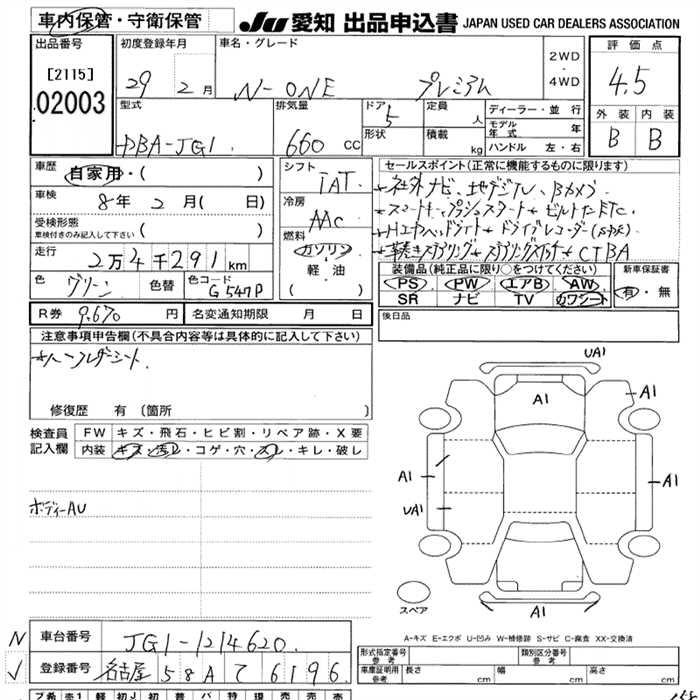 車内保管・守衛保管
JU 愛知 出品申込書 JAPAN USED CAR DEALERS ASSOCIATION
出品番号
[2115]
02003
初度登録年月
29 2月
車名・グレード
N-ONE プレミアム
2WD
・
4WD
評価点
4.5
外装 内装
B B
型式
DBA-JG1
排気量
660 cc
ドア
5
形状
定員
人
積載
kg
ディーラー・並行
モデル年式 年
ハンドル 左・右
車歴
自家用・( )
車検
8年2月( 日)
受検形態
車検付きのみ記入して下さい ( )
走行
2万4千291km
色
グリーン
色替
色コード
G547P
シフト
IAT
冷房
AAC
燃料
ガソリン
・
軽油
( )
セールスポイント(正常に機能するものに限ります)
装備品(純正品に限り○をつけてください)
PS・PW・エアB・AW
SR ナビ TV カワシート
新車保証書
有・無
R券 9,670円
名変通知期限 月 日
後日品
注意事項申告欄(不具合内容等は具体的に記入して下さい)
修復歴 有 [箇所 ]
検査員
記入欄
FW キズ・飛石・ヒビ割・リペア跡・X要
内装 キズ・汚れ・コゲ・穴・スレ・キレ・破レ
ボディーAU
UA1
A1
A1
A1
UA1
A1
A1
スペア
A-キズ E-エクボ U-凹み W-補修跡 S-サビ C-腐食 XX-交換済
N
車台番号 JG1-1214620
✓
登録番号 名古屋 58A て 6196
形式指定番号
参考
類別区分番号
参考
車庫証明用
参考
長さ cm 幅 cm 高さ cm